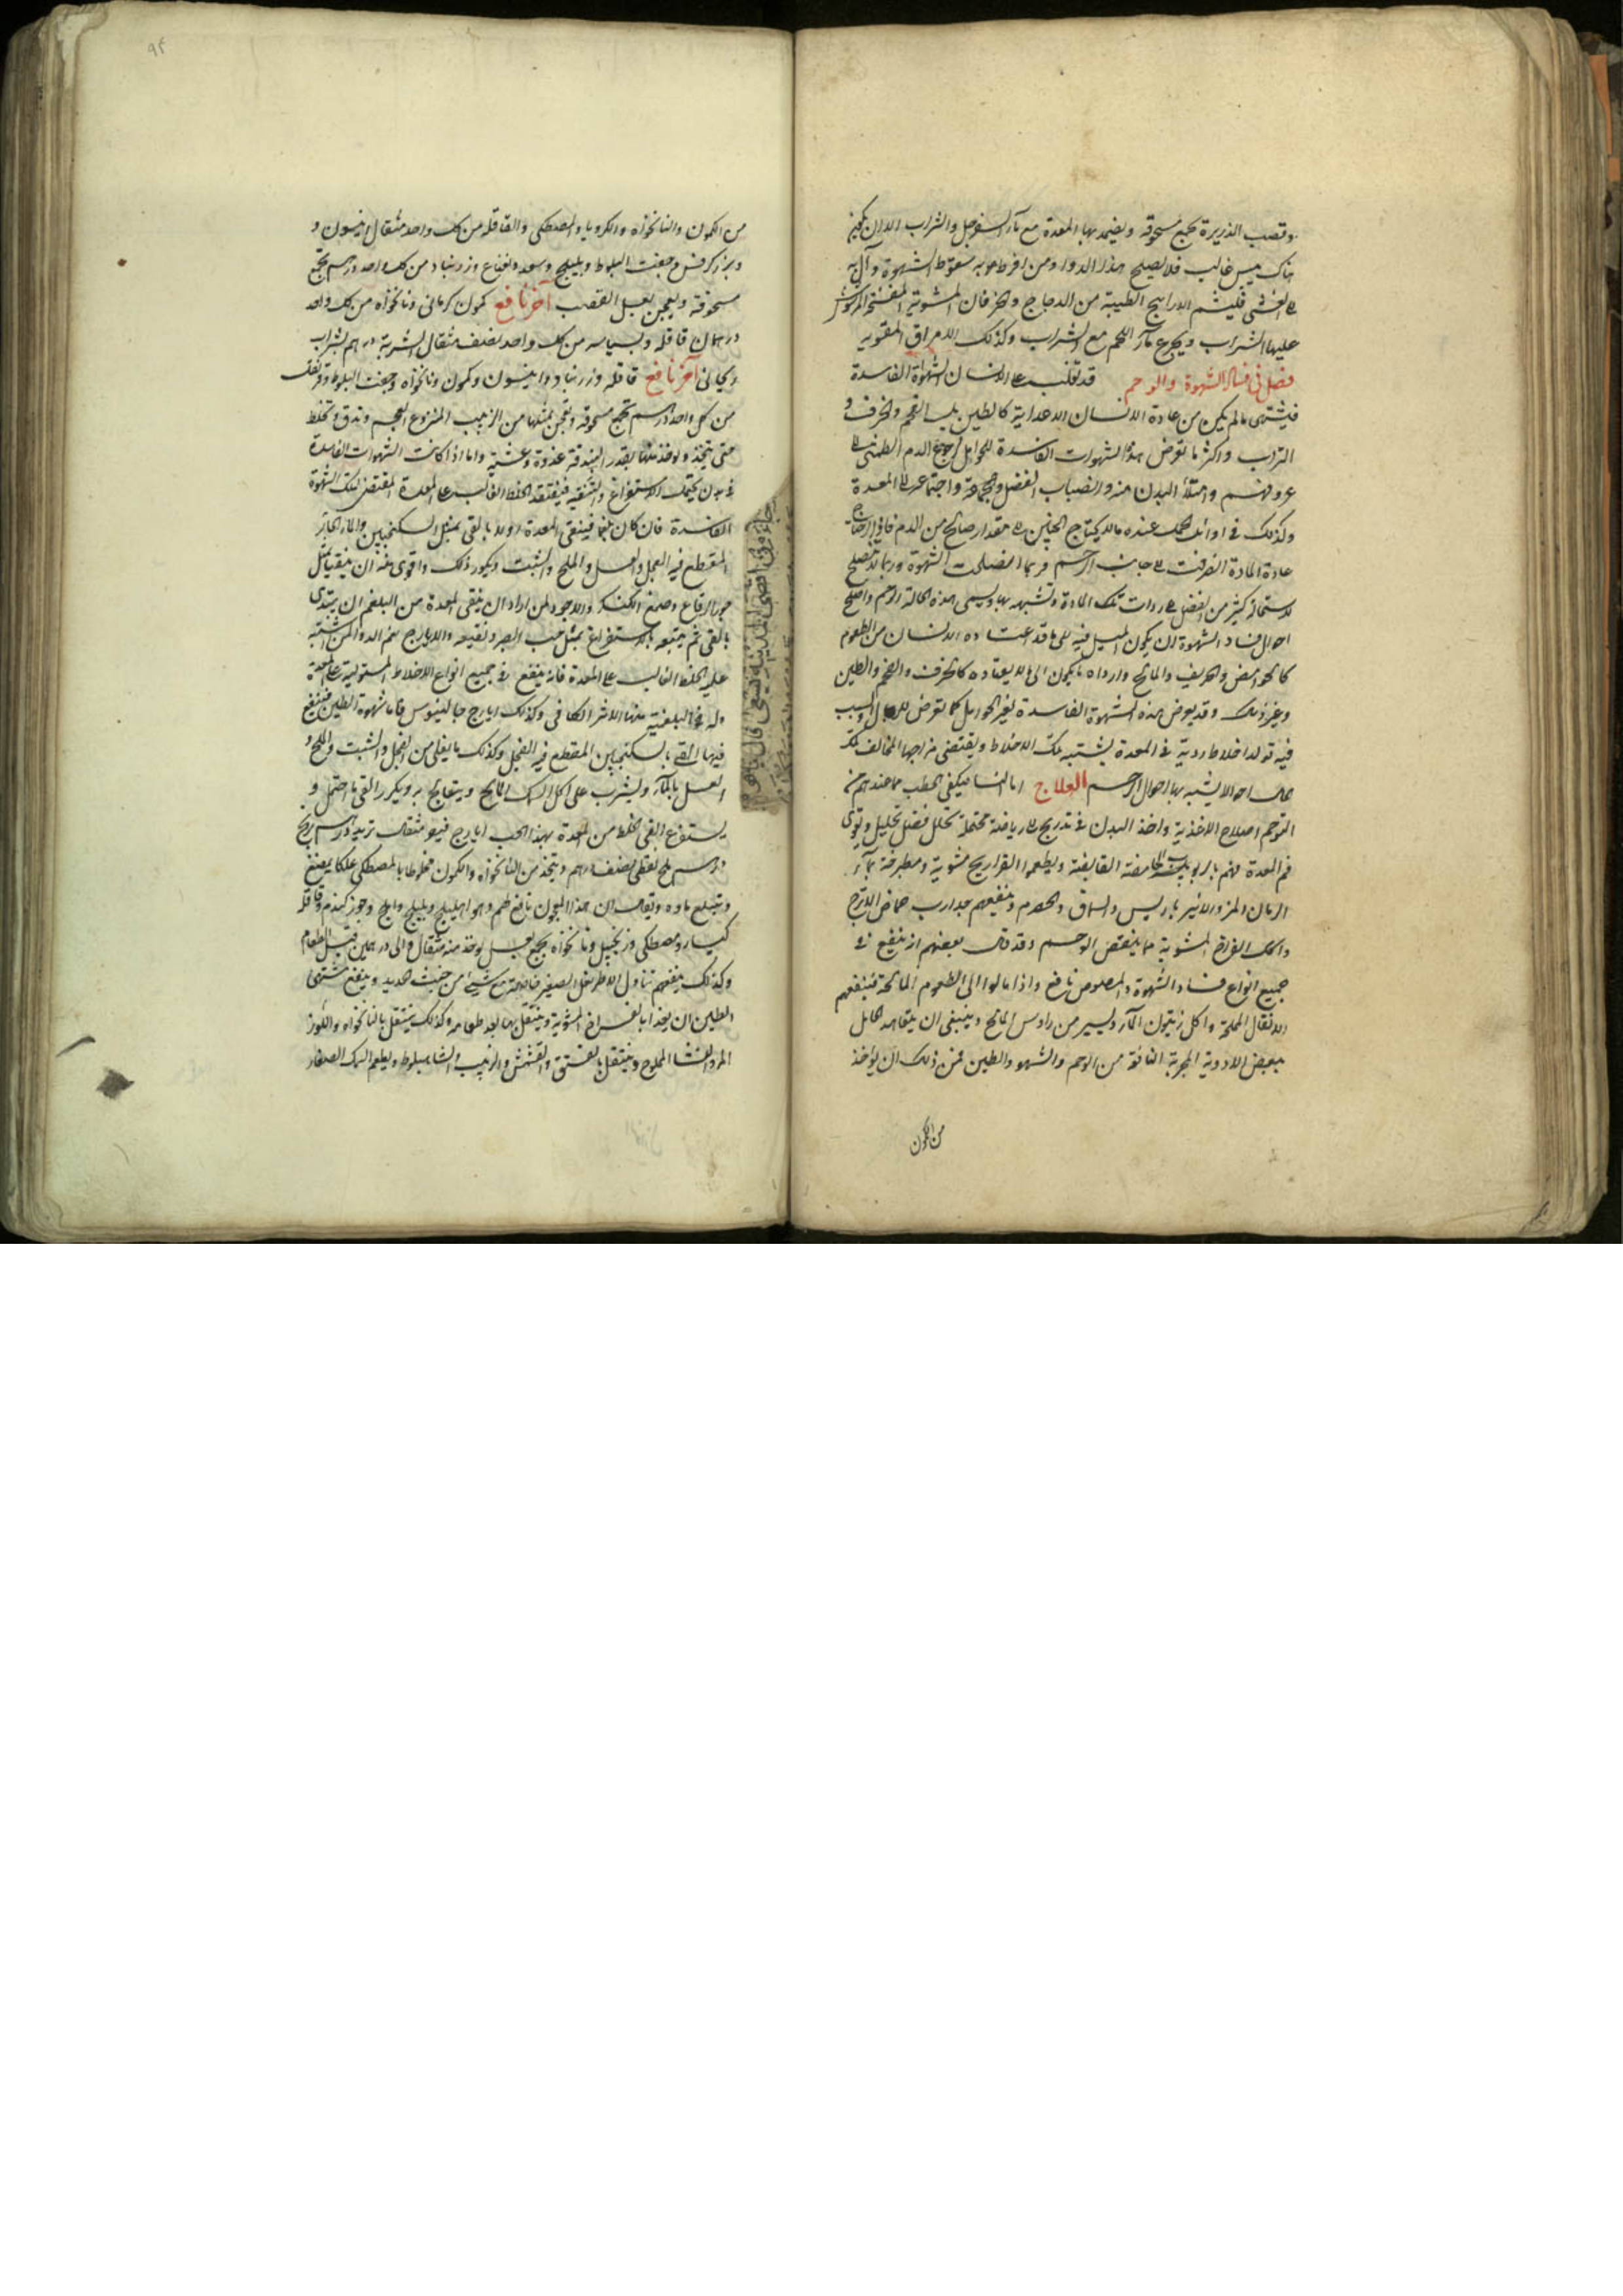 وقصب الذريرة تجمع مسحوقه ويضمد بها المعدة مع ماء السفرجل والشراب الا ان يكون
هناك يبس غالب فلا يصلح هذا الدواء ومن افرط به سقوط الشهوة وآل به
الى الغشى فليشم الاراييح الطيبة من الدجاج والخرفان المشوية المرشوش
عليها الشراب ويجرع ماء اللحم مع الشراب وكذلك الامراق المقويه
فصل فى فساد الشهوة والوحم قد تغلب على الانسان الشهوة الفاسدة
فيشتهى ما لم يكن من عادة الانسان الاغتذاء به كالطين بل الفحم والخزف و
التراب واكثر ما تعرض هذه الشهوات الفاسدة للحوامل لرجوع الدم الطمثى الى
عروقهم وامتلاء البدن منه وانصباب الفضل واجتماعه الى المعدة
وكذلك فى اوائل الحمل عنده ما لا يحتاج الجنين الى مقدار صالح من الدم
عادة المادة انصرفت الى جانب الرحم فربما انصلحت الشهوة وربما لا تصلح
كثير من الفضل الى ردات تلك المادة وتشبهه بها ويسمى هذه الحالة الوحم واصلح
احوال فساد الشهوة ان يكون الميل فيه الى ما قد اعتاده الانسان من الطعوم
كالحوامض والحريف والمالح وارداه ما يكون الى ما لا يعتاده كالخزف والفحم والطين
وغير ذلك وقد يعرض هذه الشهوة الفاسدة لغير الحوامل كما تعرض للرجال والسبب
فيه تولد اخلاط ردية فى المعدة يشتبه تلك الاخلاط ويقتضى مزاجها المخالف
احوالا يشبه بها احوال الرحم العلاج اما النساء فيكفى الخطب مما عندهم فى
التوحم اصلاح الاغذية واخذ البدن فى تدريج الى رياضة محتملة تحلل فضل تحليل وتقوى
فم المعدة منهم بالربوب الحامضة القابضة ويطعموا الفراريج مشوية ومطبوخة بماء
الرمان والمز والانبرباريس والسماق والحصرم وينفعهم جدا رب حماض الاترج
واكل الفراخ المشوية مما ينقص الوحم وقد قال بعضهم انه ينفع فى
جميع انواع فساد الشهوة والمصلوص نافع واذا مالوا الى الطعوم المالحة فينفعهم
الانقال المملحة واكل زيتون الماء ويسير من راوس المالح وينبغى ان يتعاهد الحامل
ببعض الادوية المجربة النافعة من الوحم والشهوة والطين فمن ذلك ان يؤخذ
من الكمون
من الكمون والنانخواه والكرويا والمصطكى والقاقله من كل واحد مثقال انيسون و
وبزر كرفس وجفت البلوط وبليلج وسعد ونعناع وزرنباد من كل واحد درهم تجمع
مسحوقة ويعجن بعسل القصب آخر نافع كمون كرمانى ونانخواه من كل واحد
درهمان قاقله وبسباسه من كل واحد نصف مثقال الشربة درهم بشراب
ريحانى آخر نافع قاقله وزرنباد وانيسون وكمون ونانخواه وجفت البلوط وقرنفل
من كل واحد درهم تجمع مسحوقه وتعجن بمثلها من الزبيب المنزوع العجم وتدق وتخلط
حتى يتخذ ويوخذ منها بقدر البندقه غدوة وعشية واما اذا كانت الشهوات الفاسدة
فى بدن يحتمل الاستفراغ والتنقيه فيتفقد الخلط الغالب على المعدة المقتضى لتلك الشهوة
الفاسدة فان كان بلغما فينقى المعدة اولا بالقى بمثل السكنجبين والماء الحار
المقطع فيه الفجل والعسل والملح والشبت ويكرر ذلك واقوى منه ان يتقيا بمثل
جوز الرقاع وصمغ الكنكر والاجود لمن اراد ان ينقى المعدة من البلغم ان يبتدى
بالقى ثم يتبعه بالاستفراغ بمثل حب الصبر ونقيعه والايارج نعم الدواء لمن اشتبه
عليه الخلط الغالب على المعدة فانه ينفع فى جميع انواع الاخلاط المستولية على المعدة
وله فى البلغمية منها الاثر الكافى وكذلك ايارج جالينوس فاما شهوة الطين فينفع
فيها القى بالسكنجبين المقطع فيه الفجل وكذلك ما يغلى من الفجل والشبت والملح و
العسل بالماء ويشرب على اكل السمك المالح ويتعالج به ويكرر القى ما احتمل و
يستفرغ القى الخلط من المعدة بهذا الحب ايارج فيقرا مثقال تربد درهم
درهم ملح نفطى نصف درهم ويتخذ من النانخواه والكمون مخلوطا بالمصطكى علكا يمضغ
ويبتلع ماوه ويقال ان هذا المعجون نافع لهم وهو اهليلج وبليلج واملج وجوز كندم وقاقله
كبار ومصطكى وزنجبيل ونانخواه يجمع بعسل يوخذ منه مثقال والى درهمين قبل الطعام
وكذلك ينفعهم تناول الاطريفل الصغير خاصة مع شىء من خبث الحديد وينفع مشتهى
الطين ان يغذا بالفراخ المشوية ويتنقل بها بعد طعامه وكذلك يتنقل بالنانخواه واللوز
المر والنشا المملوح ويتنقل بالفستق والقشمش والزبيب والشاهبلوط ويطعم السمك الصغار